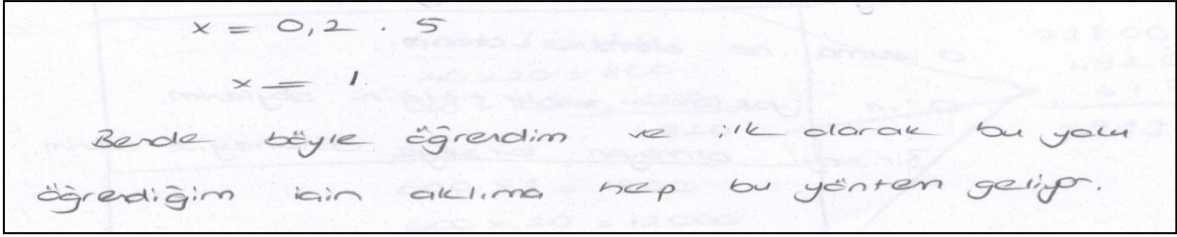 x = 0,2 . 5
x = 1
Bende böyle öğrendim ve ilk olarak bu yolu
öğrendiğim için aklıma hep bu yöntem geliyor.